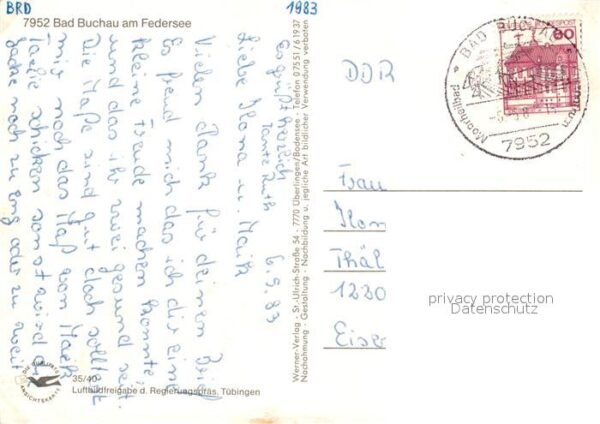 BRD
1983
7952 Bad Buchau am Federsee
6.9.83
Liebe Ilona u. Maik
Vielen Dank für deinen Brief
Es freud mich das ich dir eine
kleine Freude machen konnte,
und das ihr zwei gesund seit.
Die Maße sind gut doch solltest
mir noch das Maß von Maik
Taille schicken sonst wird die
Jacke noch zu eng oder zu weit
Es grüßt herzlich
Tante Ruth
35/40
Luftbildfreigabe d. Regierungspräs. Tübingen
ANSICHTSKARTE
Werner-Verlag - St.-Ulrich-Straße 54 - 7770 Überlingen/Bodensee - Telefon 07551/61937
Nachahmung - Gestaltung - Nachbildung u. jegliche Art bildlicher Verwendung verboten
DDR
BAD BUCHAU
Moorheilbad
7952
60
Frau
Ilon
Thäl
1220
Eise
privacy protection
Datenschutz